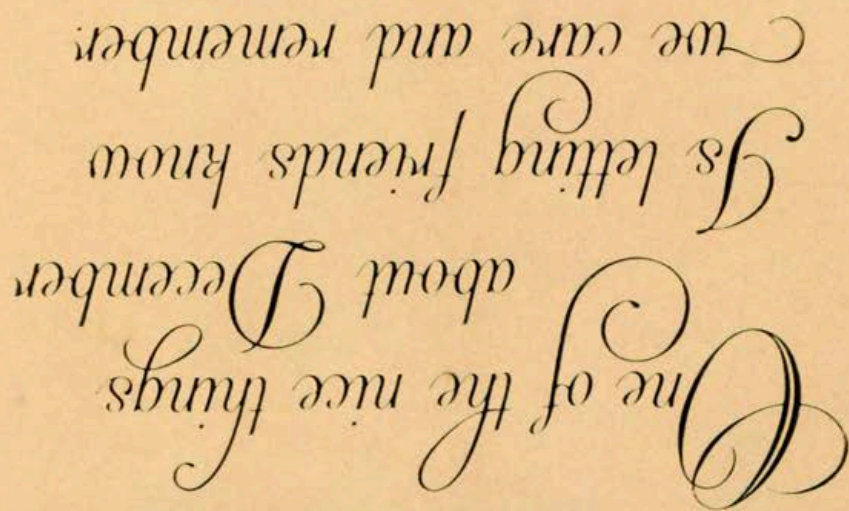 One of the nice things
about December
Is letting friends know
we care and remember.